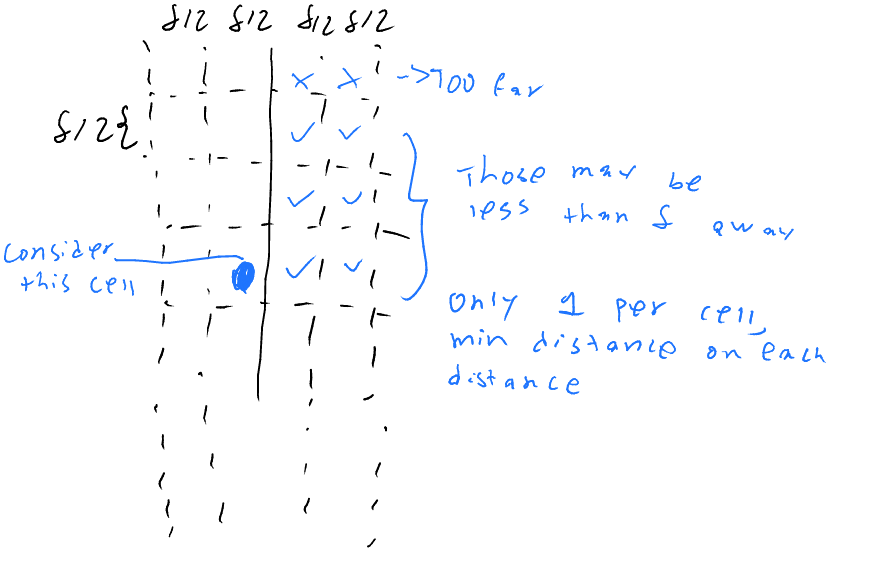 δ/2 δ/2 δ/2 δ/2
-> TOO far
δ/2{
Those may be
less than δ away
Consider
this cell
Only 1 per cell,
min distance on each
distance